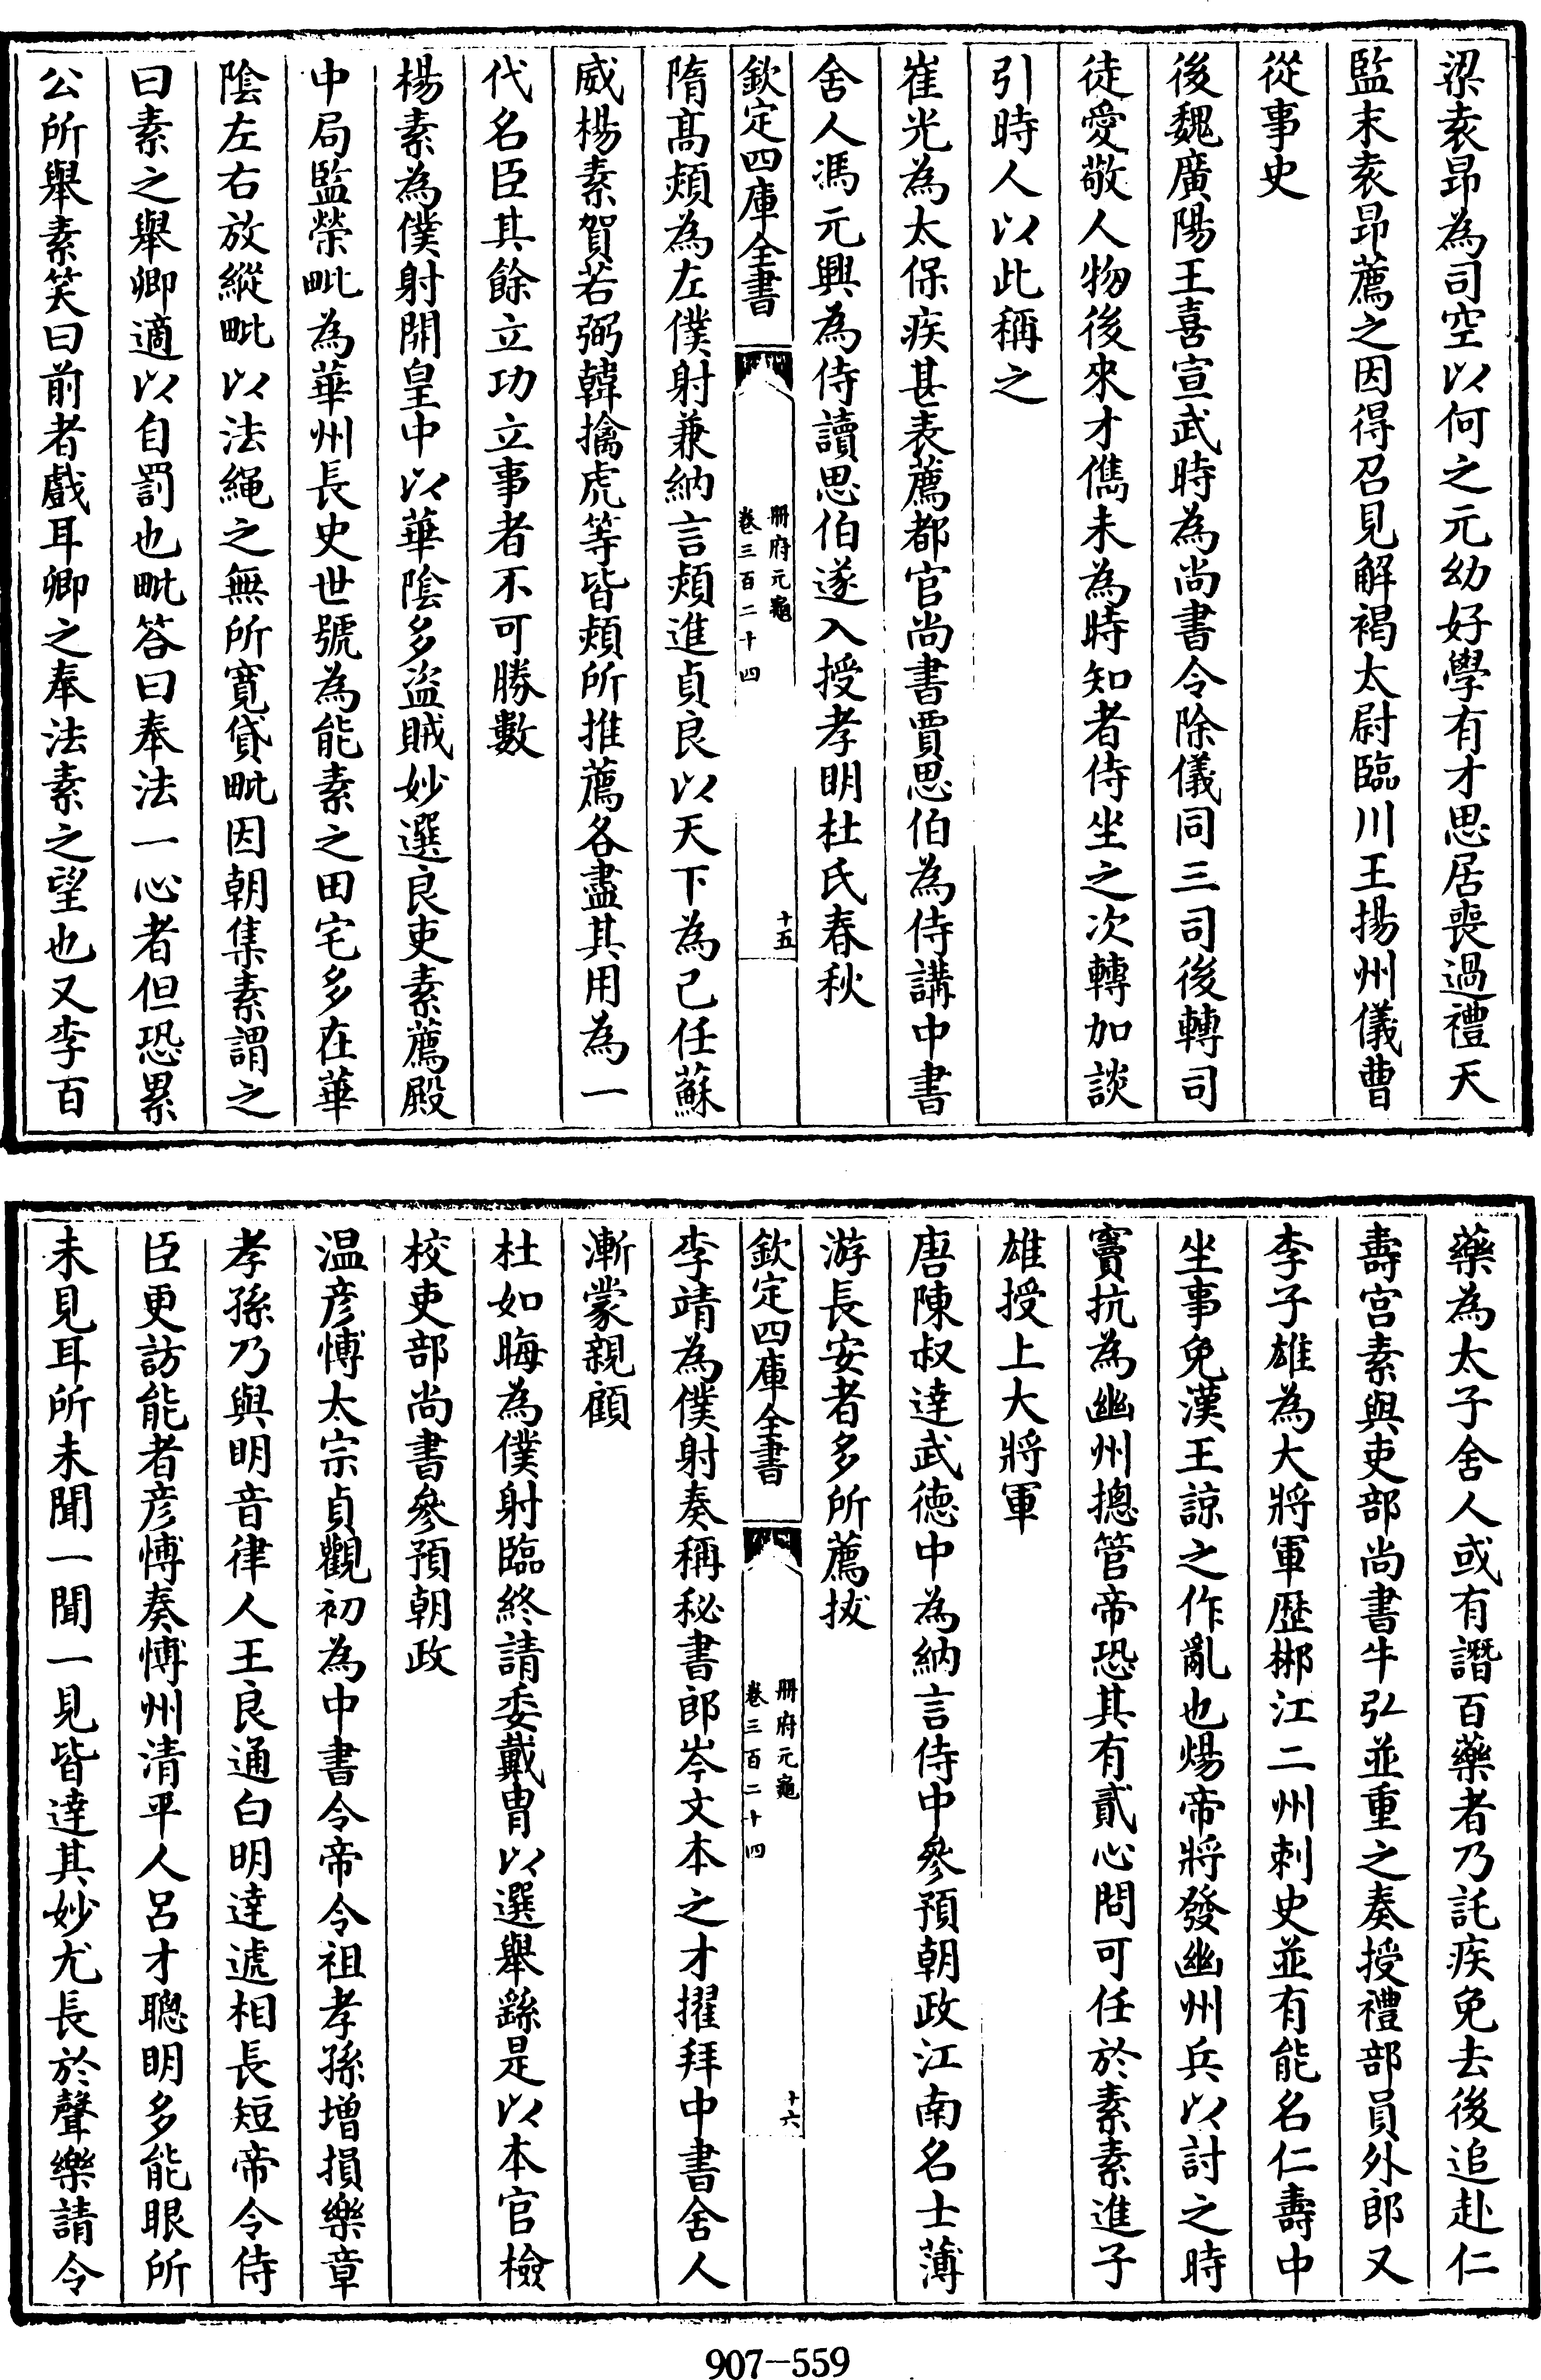 梁袁昂為司空以何之元幼好學有才思居喪過禮天
監末袁昂薦之因得召見解褐太尉臨川王揚州儀曹
從事史
後魏廣陽王喜宣武時為尚書令除儀同三司後轉司
徒愛敬人物後來才儁未為時知者侍坐之次轉加談
引時人以此稱之
崔光為太保疾甚表薦都官尚書賈思伯為侍講中書
舍人馮元興為侍讀思伯遂入授孝明杜氏春秋
欽定四庫全書
冊府元龜
卷三百二十四
十五
隋高熲為左僕射兼納言熲進貞良以天下為己任蘇
威楊素賀若弼韓擒虎等皆熲所推薦各盡其用為一
代名臣其餘立功立事者不可勝數
楊素為僕射開皇中以華陰多盜賊妙選良吏素薦殿
中局監榮毗為華州長史世號為能素之田宅多在華
陰左右放縱毗以法繩之無所寬貸毗因朝集素謂之
曰素之舉卿適以自罰也毗答曰奉法一心者但恐累
公所舉素笑曰前者戲耳卿之奉法素之望也又李百
藥為太子舍人或有譖百藥者乃託疾免去後追赴仁
壽宮素與吏部尚書牛弘並重之奏授禮部員外郎又
李子雄為大將軍歴郴江二州刺史並有能名仁壽中
坐事免漢王諒之作亂也煬帝將發幽州兵以討之時
竇抗為幽州摠管帝恐其有貳心問可任於素素進子
雄授上大將軍
唐陳叔達武德中為納言侍中參預朝政江南名士薄
游長安者多所薦拔
欽定四庫全書
冊府元龜
卷三百二十四
十六
李靖為僕射奏稱秘書郎岑文本之才擢拜中書舍人
漸蒙親顧
杜如晦為僕射臨終請委戴胄以選舉繇是以本官檢
校吏部尚書參預朝政
温彦博太宗貞觀初為中書令帝令祖孝孫增損樂章
孝孫乃與明音律人王良通白明達遞相長短帝令侍
臣更訪能者彦博奏博州清平人呂才聰明多能眼所
未見耳所未聞一聞一見皆達其妙尤長於聲樂請令
907-559